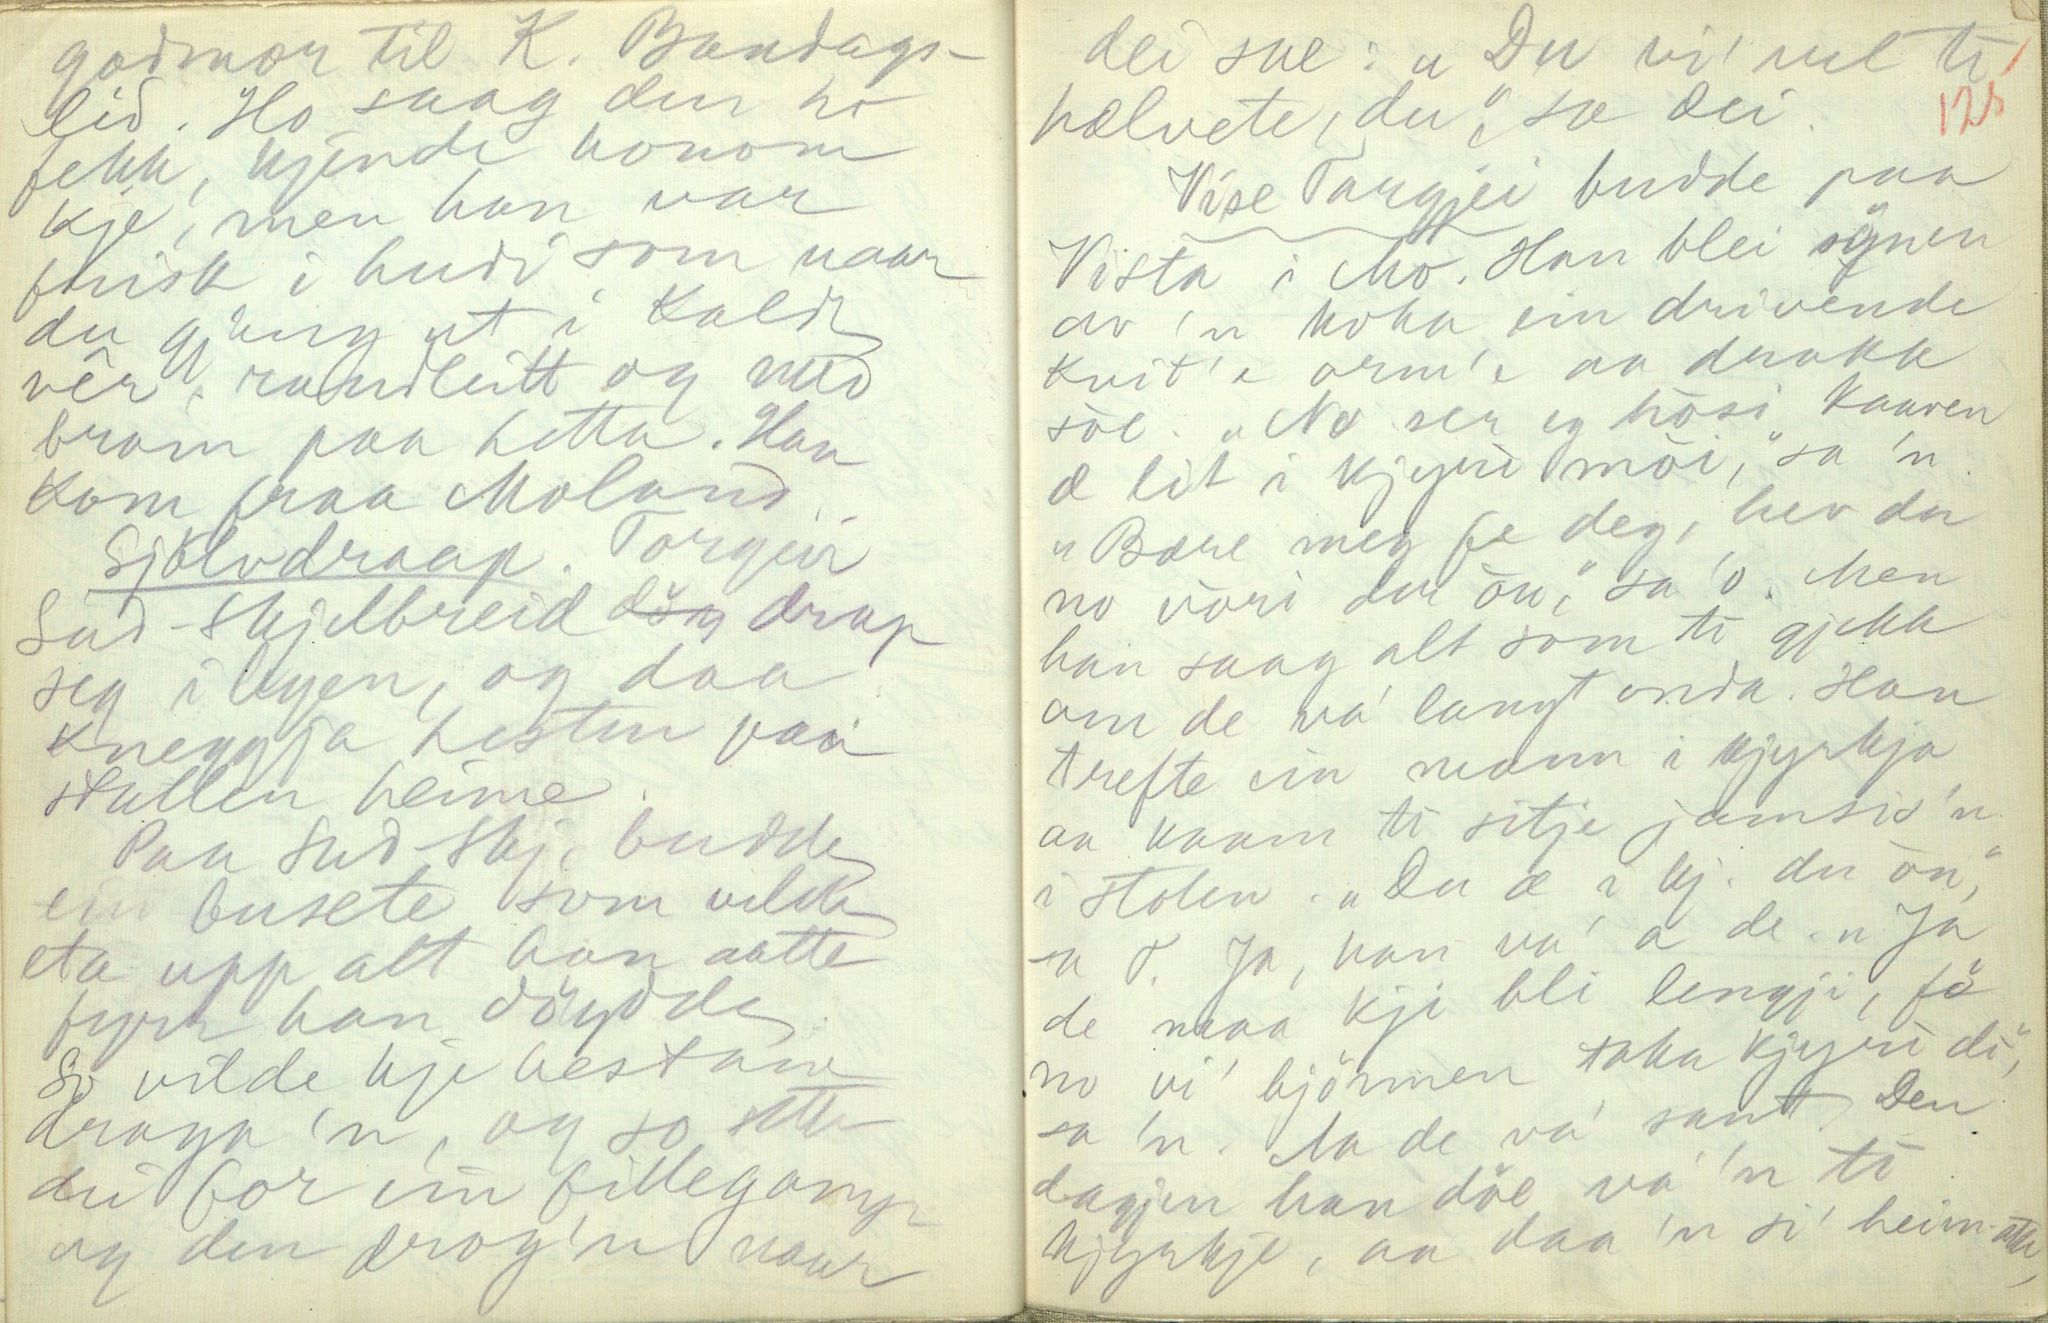 godmor til K. Bandags-
lid. Ho saag den ho
fekk, kjende honom
kje, men han var
frisk i hudi som naar
du gjeng ut i kaldt
vêr, raudleitt og med
bram paa hetta. Han
kom fraa Moland.
Sjølvdraap. Torgeir
Sud-Skjelbreid drap
seg i byen, og daa
kneggja hesten paa
stallen heime.
Paa Sud-Skj. budde
ein busete som vilde
eta upp alt han aatte
fyrr han döydde.
So vilde kje hestane
draga 'n, og so sette
dei for ein fillegamp
og den drog'n naar
dei sae: „Du vi' vel te
hælvete, du", sæ dei.
125
Vise Targjei budde paa
Vista i Mo. Han blei synen
av 'n koka ein drivende
kvit'e orm'e aa drakk
söe. „No ser eg hósi kaaven
æ lit i kjyri mói," sa 'n.
„Bære meg fe deg, hev du
no vori der óu," sa 'o. Men
han saag alt som te gjekk
om de va' langt unda. Han
trefte ein mann i kjyrkja
aa kaam te sitje jamsis 'n
i stolen. „Du æ i kj. du óu",
sa T. Ja, han va' a de. „Ja
de maa kji bli lengji, fö
no vi' björnen taka kjyri di",
sa 'n. Aa de va' sant. Den
dagjen han döe va' 'n te
kjyrkje, aa daa 'n si' heim-atte,